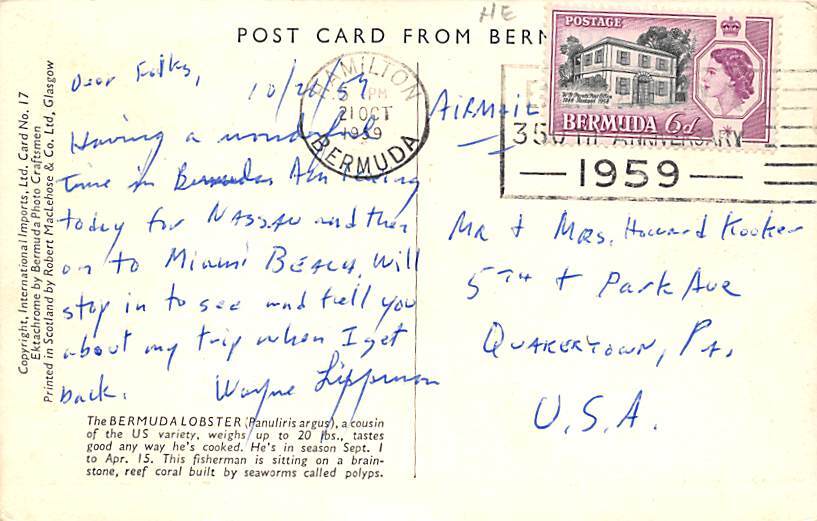 POST CARD FROM BERM
HE
HAMILTON
5 PM
21 OCT
1959
BERMUDA
350TH ANNIVERSARY
— 1959 —
POSTAGE
BERMUDA 6d
Dear Folks,
10/21/59
Having a wonderful
time in Bermuda. Am
today for NASSAU and then
on to MIAMI BEACH. Will
stop in to see and tell you
about my trip when I get
back.
Wayne Lippman
AIRMAIL
MR + MRS. Howard Kooker
5TH + Park Ave
QUAKERTOWN, PA.
U.S.A.
The BERMUDA LOBSTER (Panuliris argus), a cousin
of the US variety, weighs up to 20 lbs., tastes
good any way he's cooked. He's in season Sept. 1
to Apr. 15. This fisherman is sitting on a brain-
stone, reef coral built by seaworms called polyps.
Copyright, International Imports, Ltd, Card No. 17
Ektachrome by Bermuda Photo Craftsmen
Printed in Scotland by Robert MacLehose & Co. Ltd, Glasgow